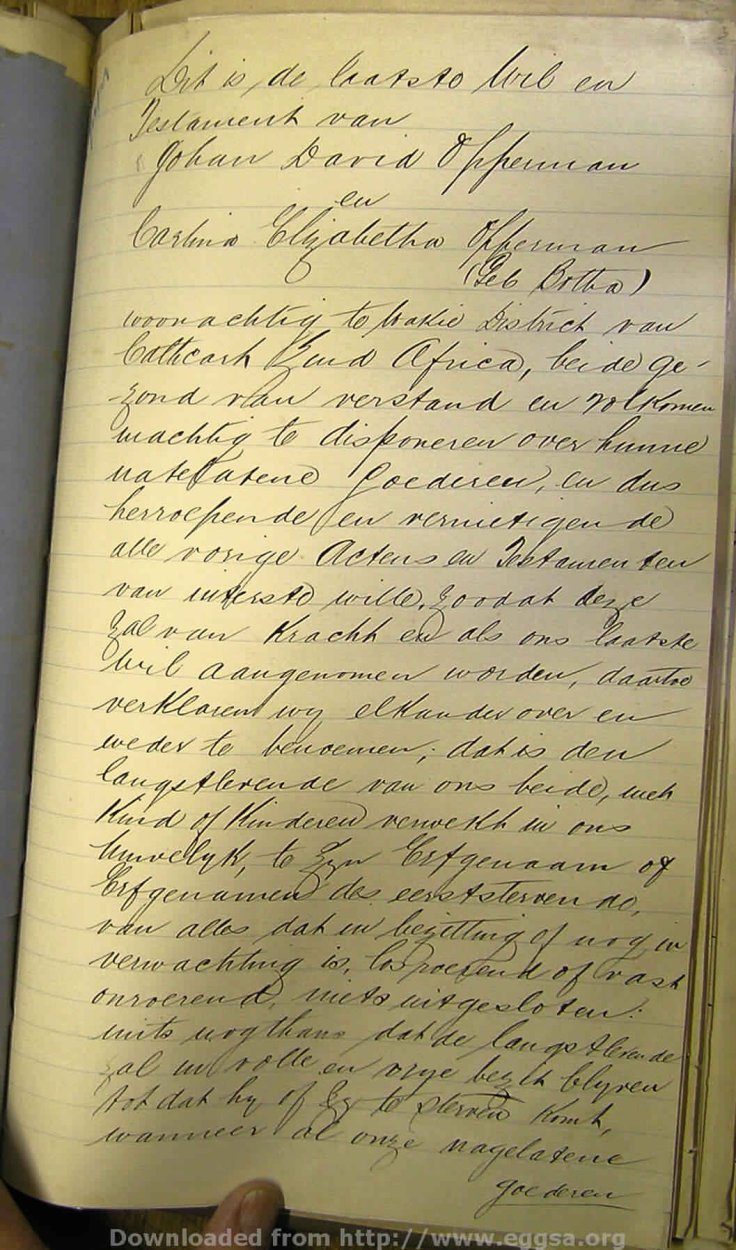 Dit is de laatste Wil en
Testament van
Johan David Opperman
en
Carlina Elizabetha Opperman
(Geb Botha)
woonachtig te District van
Cathcart Zuid Africa, beide ge-
zond van verstand en volkomen
machtig te disponeren over hunne
natelatene Goederen, en dus
herroepende en vernietigende
alle vorige Actens en Testamenten
van uiterste wille, zoodat deze
zal van Kracht en als ons laatste
wil aangenomen worden, daartoe
verklaren wy elkander over en
weder te benoemen; dat is den
langstlevende van ons beide, met
Kind of Kinderen verwekt in ons
Huwelyk, te zyn Erfgenaam of
Erfgenamen des eerststervende,
van alles dat in bezitting of nog in
verwachting is, los roerend of vast
onroerend, niets uitgesloten:
mits nogthans dat de langstlevende
zal in volle en vrye bezit blyven
tot dat hy of zy te sterven komt,
wanneer al onze nagelatene
goederen
Downloaded from http://www.eggsa.org